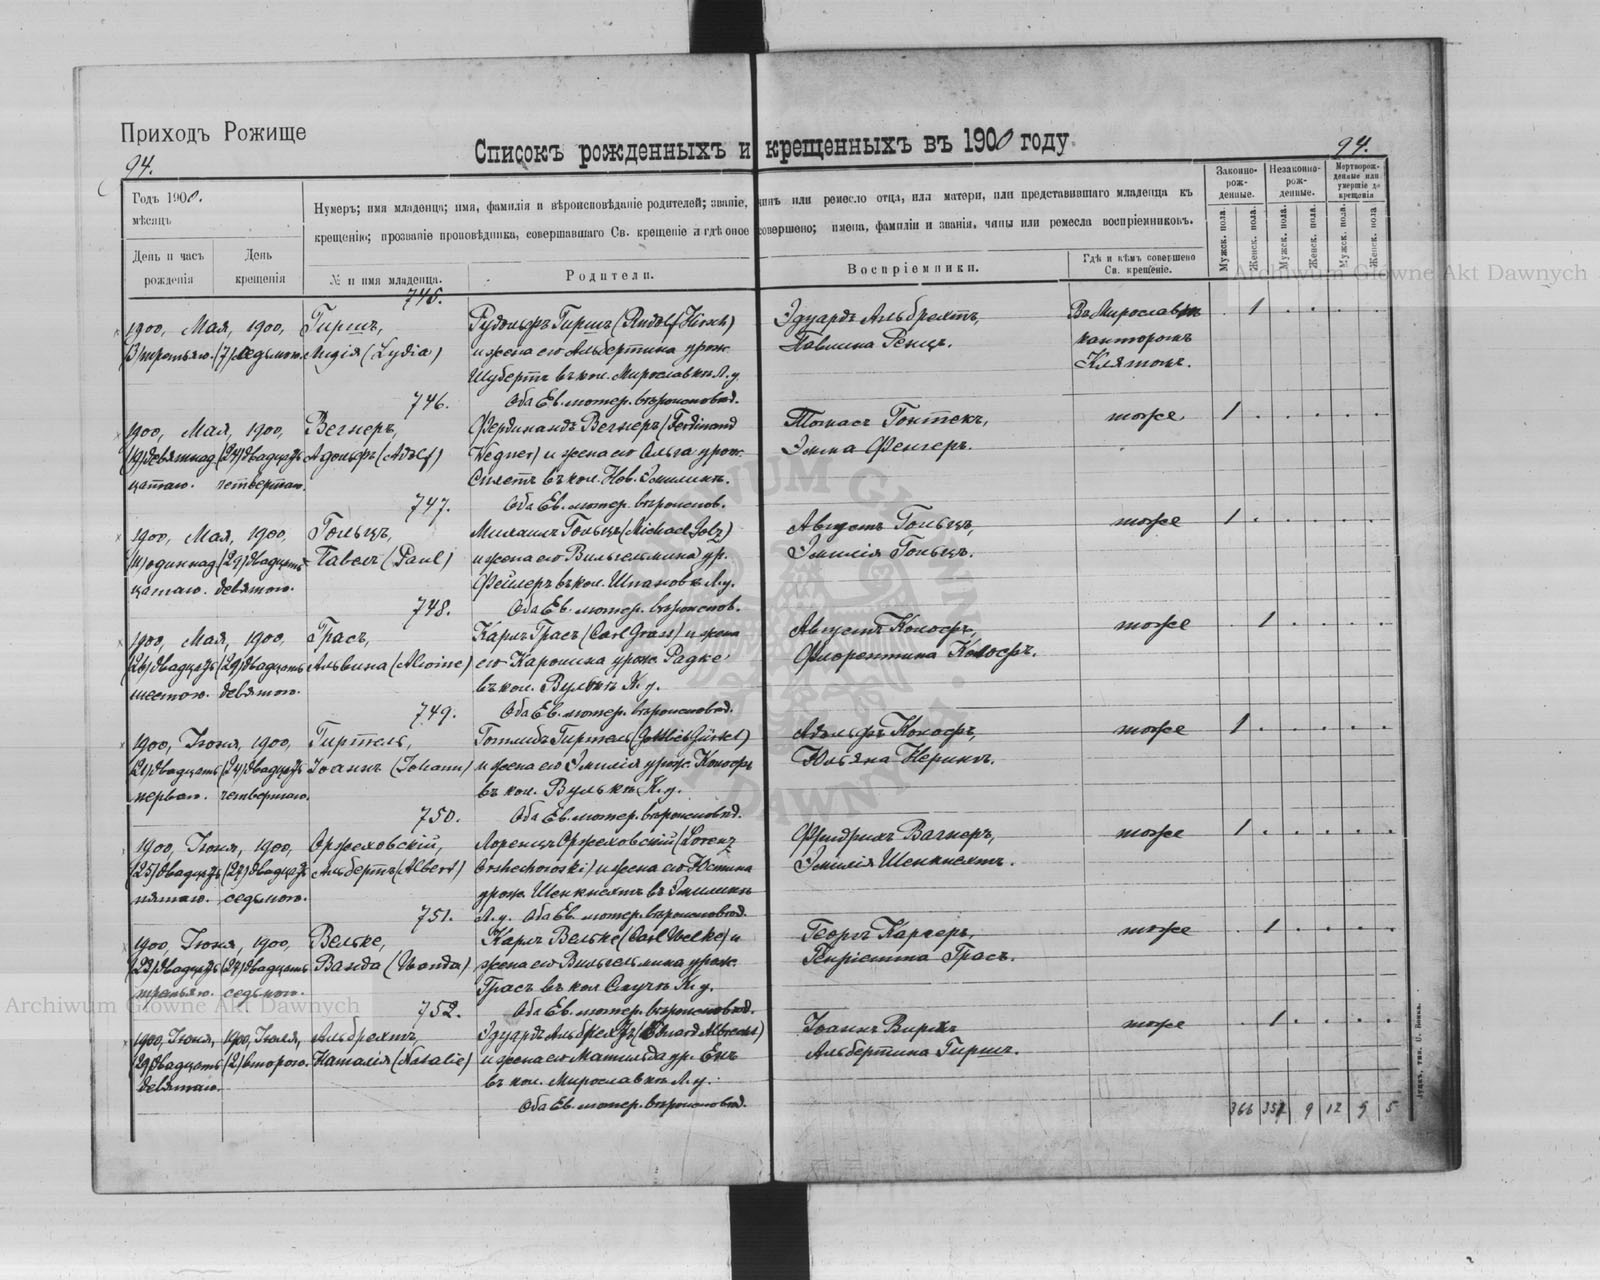 Приходъ Рожище
94.
Списокъ рожденныхъ и крещенныхъ въ 1900 году
94.
Годъ 1900.
мѣсяцъ
День и часъ
рожденія
День
крещенія
Нумеръ; имя младенца; имя, фамилія и вѣроисповѣданіе родителей; званіе, чинъ или ремесло отца, или матери, или представившаго младенца къ
крещенію; прозваніе проповѣдника, совершавшаго Св. крещеніе и гдѣ оное совершено; имена, фамиліи и званія, чины или ремесла воспріемниковъ.
№ и имя младенца.
Родители.
Воспріемники.
Гдѣ и кѣмъ совершено
Св. крещеніе.
Законно-
рож-
денные.
Незаконно-
рож-
денные.
Мертворож-
денные или
умершіе до
крещенія
Мужск. пола.
Женск. пола.
Мужск. пола.
Женск. пола.
Мужск. пола.
Женск. пола.
745.
1900, Мая, 1900, Гиршъ, Рудольфъ Гиршъ (Rudolf Hirsch) Эдуардъ Альбрехтъ, Въ Мирославкѣ 1
(3) третьяго. (7) седьмого. Лидія (Lydia) и жена его Альбертина урож. Павлина Ренцъ. канторомъ
Шубертъ въ кол. Мирославкѣ Л. у. Клятомъ.
746. Оба Ев. лютер. вѣроисповѣд.
1900, Мая, 1900, Вегнеръ, Фердинандъ Вегнеръ (Ferdinand Томасъ Гонтекъ, тоже. 1
(19) девятнад (24) двадцать Адольфъ (Adolf) Wegner) и жена его Ольга урож. Эмма Фенгеръ.
цатаго. четвертаго. въ кол. Нов.
747. Оба Ев. лютер. вѣроисповѣд.
1900, Мая, 1900, Гольцъ, Михаилъ Гольцъ (Michael Golz) Августъ Гольцъ, тоже 1
(11) одиннад (29) двадцать Павелъ (Paul) и жена его Вильгельмина ур. Эмилія Гольцъ.
цатаго. девятого. Фейлеръ въ кол. Шпановъ Л. у.
748. Оба Ев. лютер. вѣроисповѣд.
1900, Мая, 1900, Грасъ, Карлъ Грасъ (Carl Grass) и жена Августъ Колосфъ, тоже 1
(26) двадцать (29) двадцать Альвина (Alwine) его Каролина урож. Радке Флорентина Колосфъ.
шестого. девятого. въ кол. Вулькѣ Л. у.
749. Оба Ев. лютер. вѣроисповѣд.
1900, Іюня, 1900, Гиртель, Готлибъ Гиртель (Gottlieb Gürtel) Адольфъ Колосфъ, тоже 1
(21) двадцать (24) двадцать Іоаннъ (Johann) и жена его Эмилія урож. Колосфъ Юльяна
перваго. четвертаго. въ кол. Вулькѣ Л. у.
750. Оба Ев. лютер. вѣроисповѣд.
1900, Іюня, 1900, Оржеховскій, Лоренцъ Оржеховскій (Lorenz Фридрихъ Вагнеръ, тоже 1
(25) двадцать (27) двадцать Альбертъ (Albert) Orshechowski) и жена его Юстина Эмилія Шенкнехтъ.
пятаго. седьмого. урож. Шенкнехтъ въ Эмилинѣ
751. Л. у. Оба Ев. лютер. вѣроисповѣд.
1900, Іюня, 1900, Велке, Карлъ Велке (Carl Welke) и Георгъ Каргеръ, тоже 1
(23) двадцать (27) двадцать Ванда (Wanda) жена его Вильгельмина урож. Генріетта Грасъ.
третьяго. седьмого. Грасъ въ кол.
752. Оба Ев. лютер. вѣроисповѣд.
1900, Іюня, 1900, Іюля, Альбрехтъ, Эдуардъ Альбрехтъ (Eduard Albrecht) Іоаннъ тоже 1
(29) двадцать (2) второго. Наталія (Natalie) и жена его Матильда ур. Енъ Альбертина Гиршъ.
девятаго. въ кол. Мирославкѣ Л. у.
Оба Ев. лютер. вѣроисповѣд.
366 357 9 12 9 5
Луцкъ, тип. С. Бонка.
Archiwum Główne Akt Dawnych
Archiwum Główne Akt Dawnych
ARCHIWUM GŁÓWNE AKT DAWNYCH